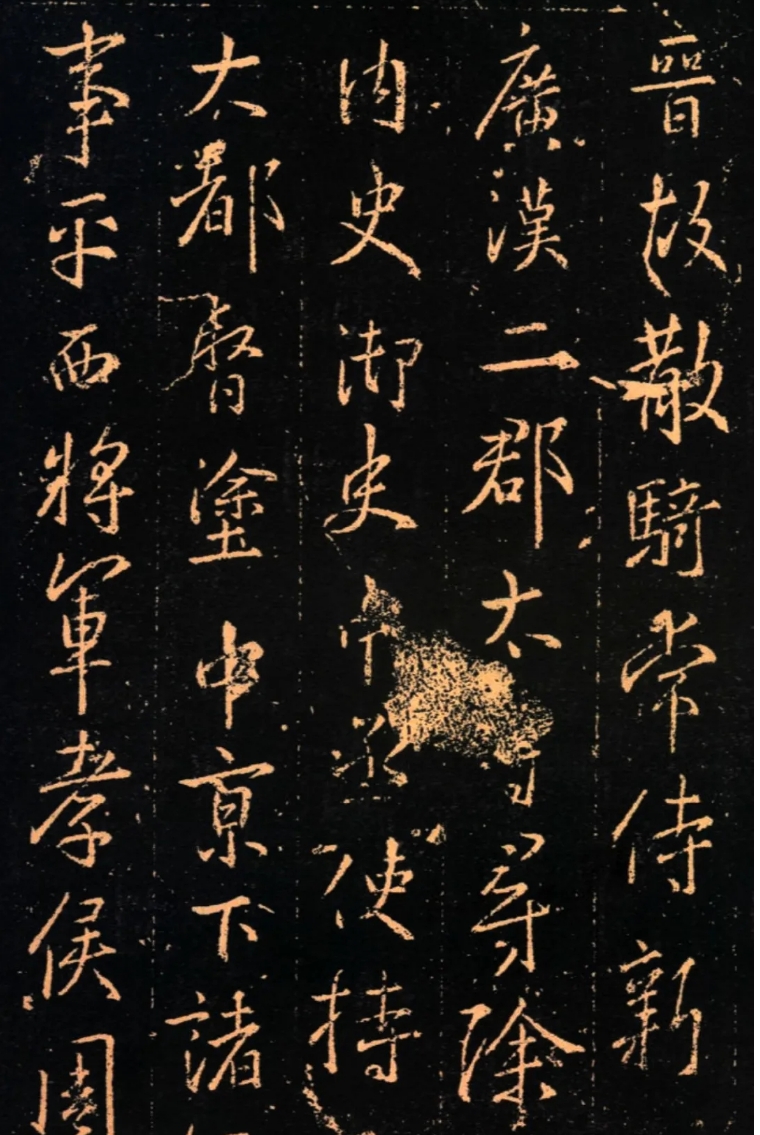 晋故散騎常侍新
廣漢二郡太守尋除
内史御史中丞使持
大都督塗中京下諸
事平西將軍孝侯周